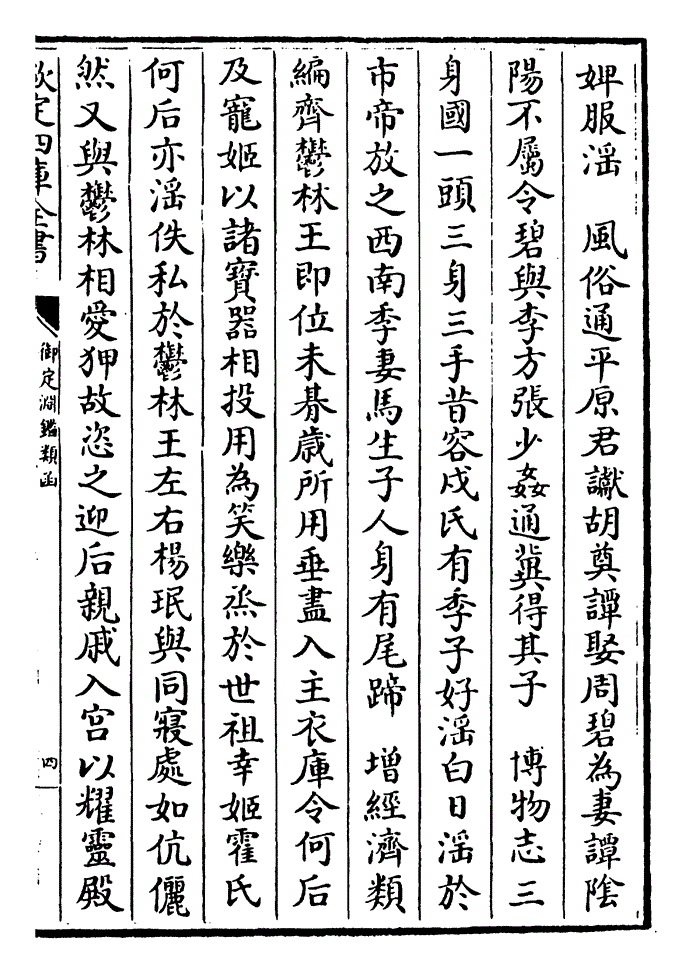 婢服淫　風俗通平原君讞胡奠譚娶周碧為妻譚陰
陽不屬令碧與李方張少姦通冀得其子　博物志三
身國一頭三身三手昔容成氏有季子好淫白日淫於
市帝放之西南季妻馬生子人身有尾蹄　増經濟類
編齊鬱林王即位未朞歲所用垂盡入主衣庫令何后
及寵姬以諸寳器相投用為笑樂烝於世祖幸姬霍氏
何后亦淫佚私於鬱林王左右楊珉與同寢處如伉儷
然又與鬱林相愛狎故恣之迎后親戚入宫以耀靈殿
欽定四庫全書
御定淵鑑類函
四